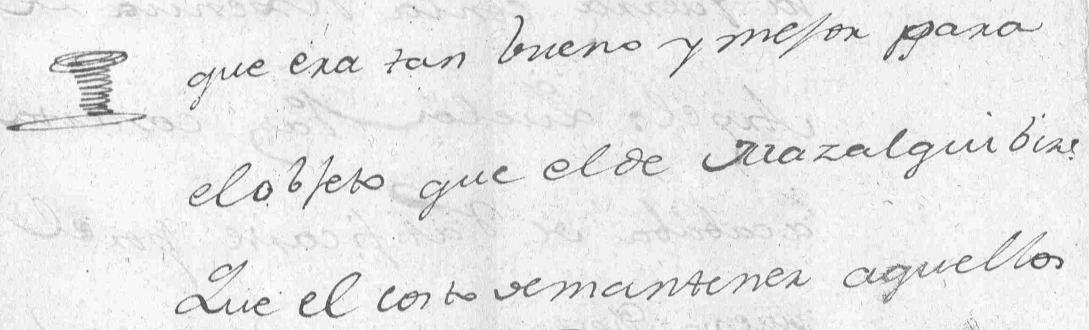 que era tan bueno y mejor para
el objeto que el de Mazalquibir:
Que el costo de mantener aquellos